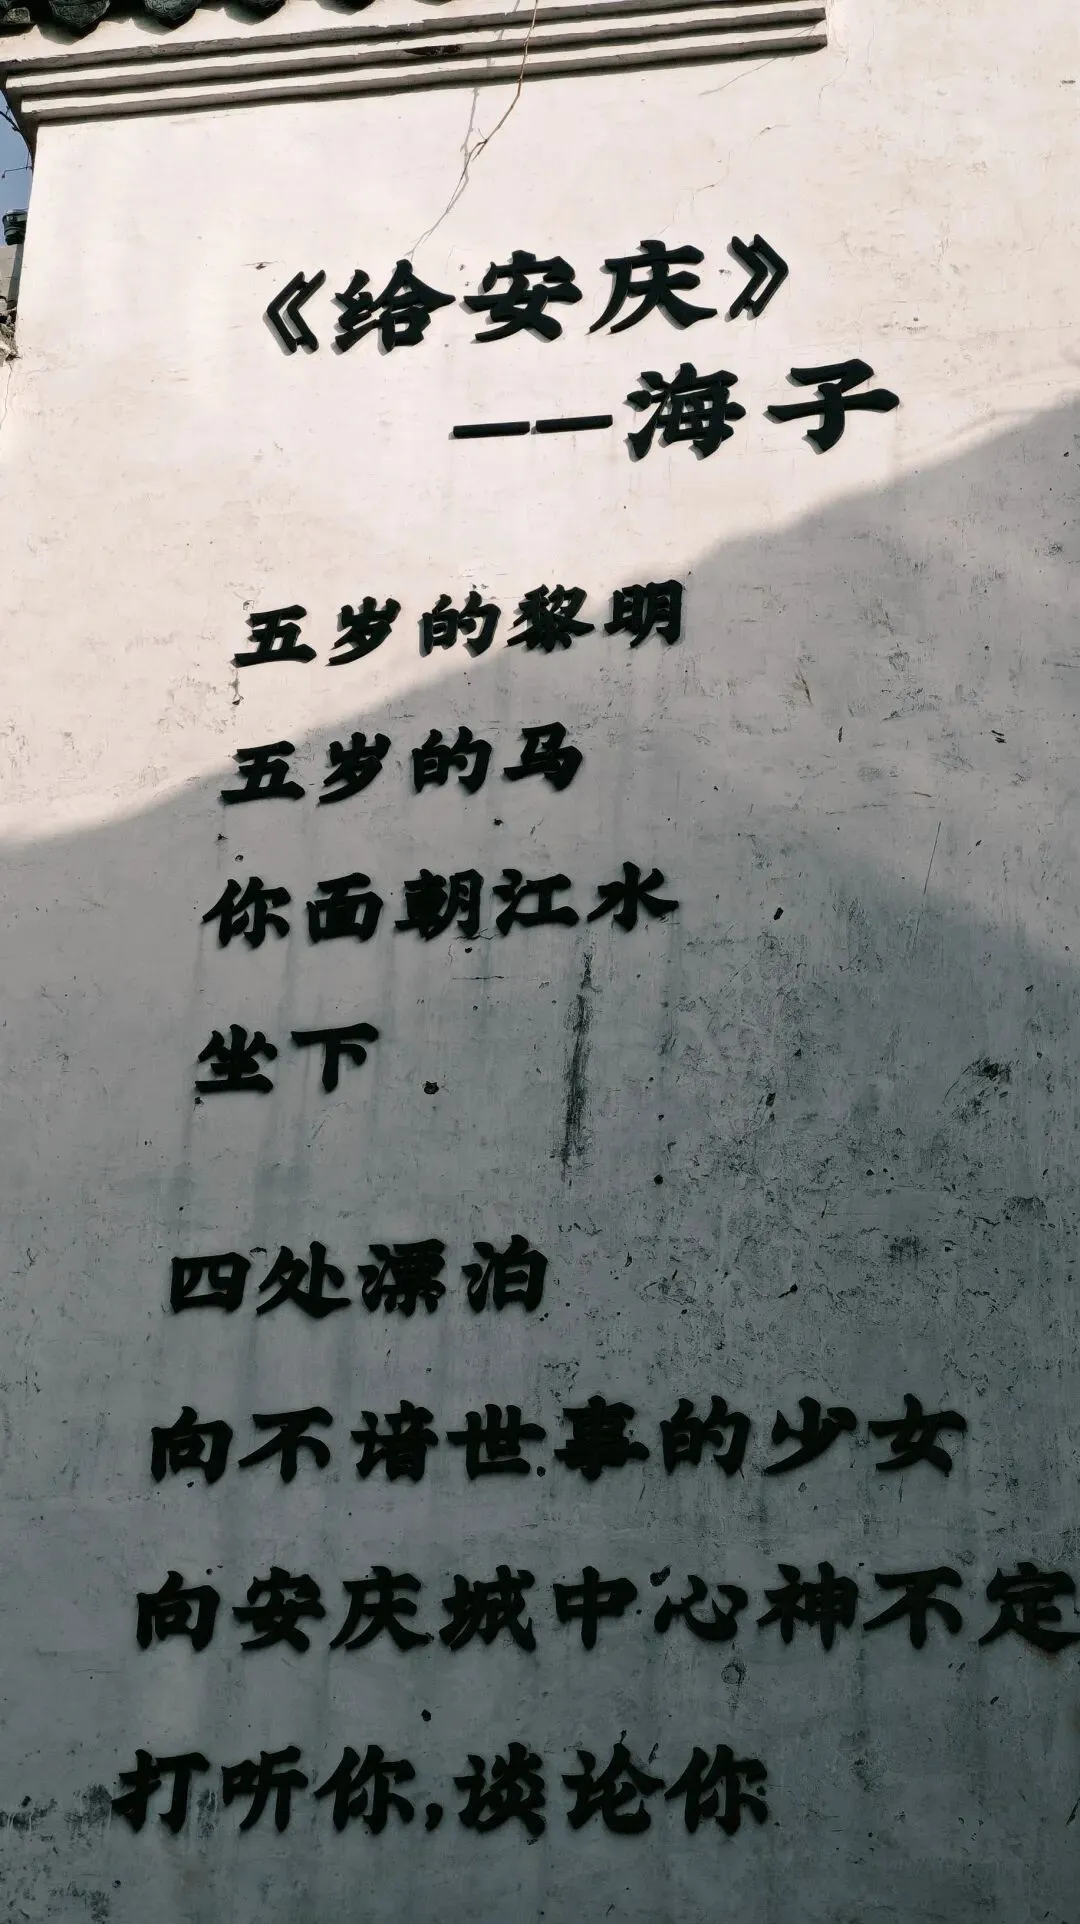 《给安庆》
——海子
五岁的黎明
五岁的马
你面朝江水
坐下
四处漂泊
向不谙世事的少女
向安庆城中心神不定
打听你,谈论你